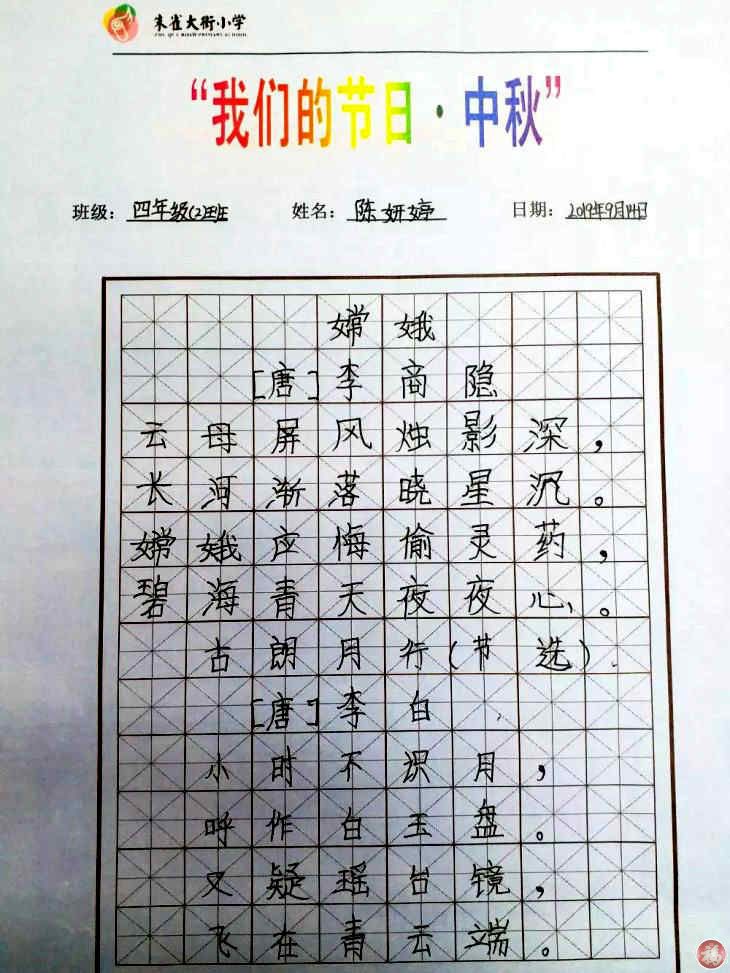 朱雀大街小学
“我们的节日·中秋”
班级：四年级(2)班 姓名：陈妍婷 日期：2019年9月14日
嫦娥
[唐]李商隐
云母屏风烛影深，
长河渐落晓星沉。
嫦娥应悔偷灵药，
碧海青天夜夜心。
古朗月行(节选)
[唐]李白
小时不识月，
呼作白玉盘。
又疑瑶台镜，
飞在青云端。